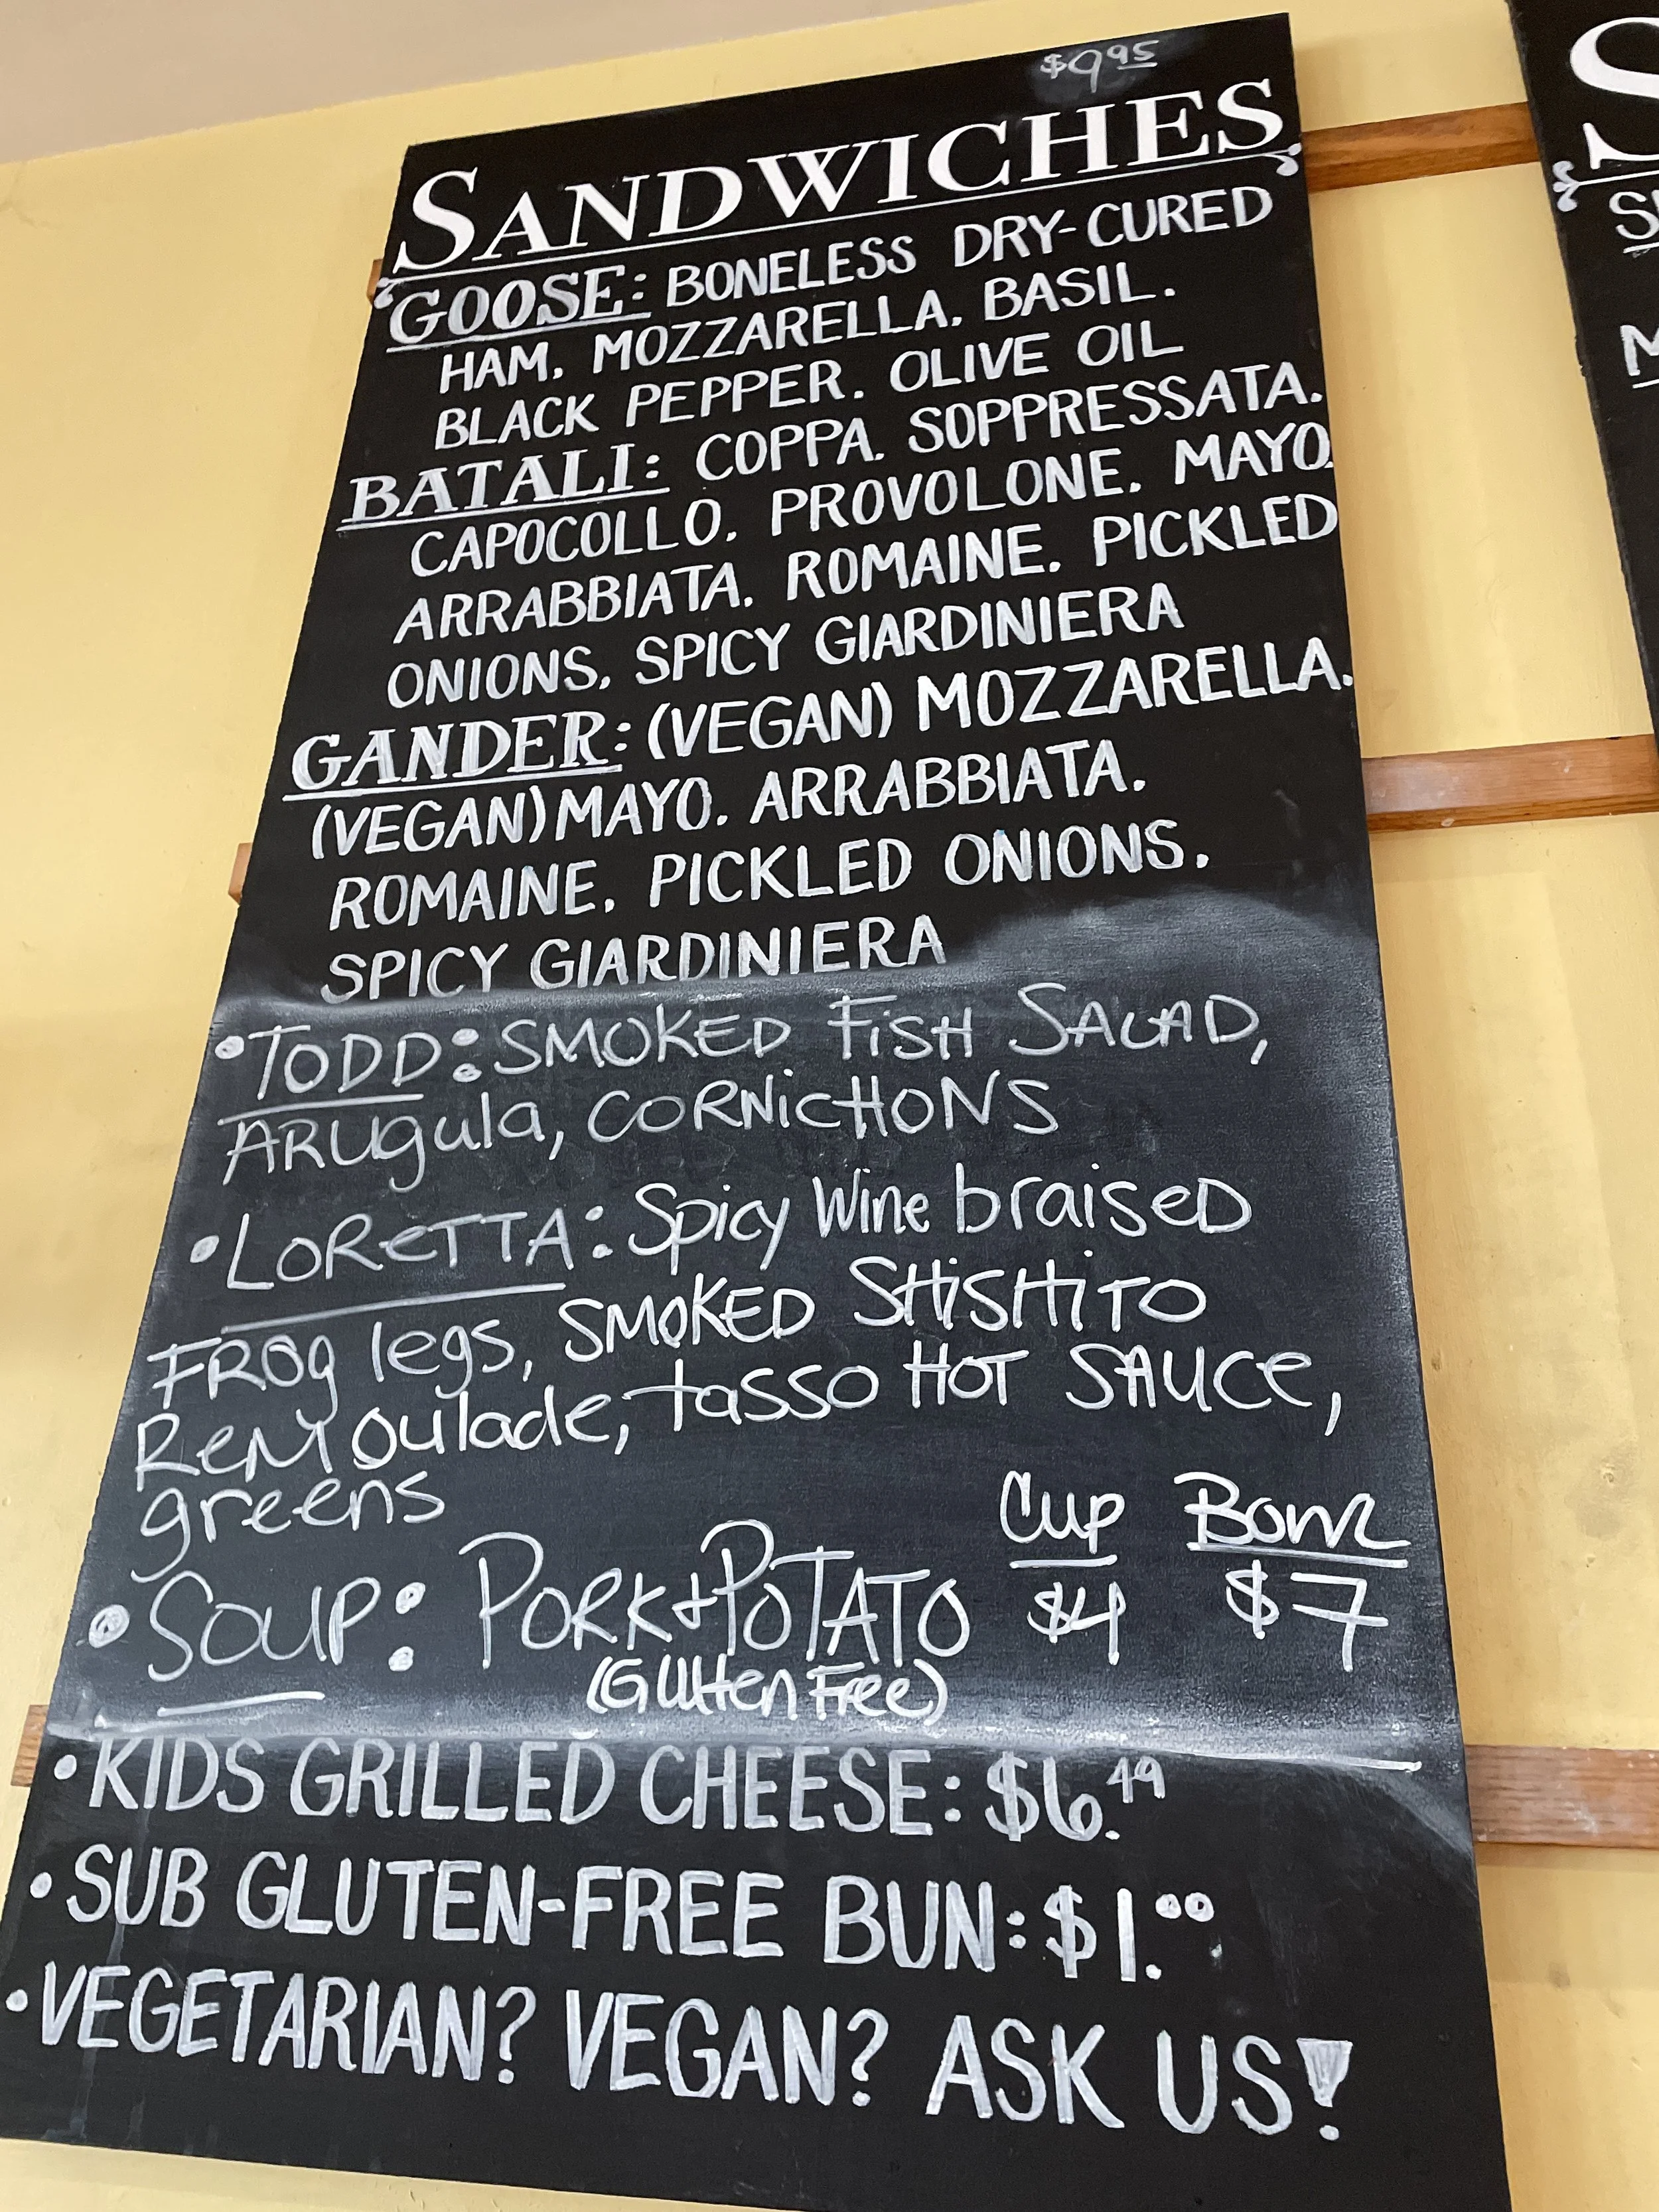 $9.95
SANDWICHES
GOOSE: BONELESS DRY-CURED
HAM. MOZZARELLA. BASIL.
BLACK PEPPER. OLIVE OIL
BATALI: COPPA. SOPPRESSATA.
CAPOCOLLO. PROVOLONE. MAYO.
ARRABBIATA. ROMAINE. PICKLED
ONIONS. SPICY GIARDINIERA
GANDER: (VEGAN) MOZZARELLA.
(VEGAN) MAYO. ARRABBIATA.
ROMAINE. PICKLED ONIONS.
SPICY GIARDINIERA
•TODD: SMOKED FiSH SALAD,
ARUgula, CORNicHONS
•LOReTTA: Spicy Wine braiseD
FROg legs, SMOKED SHiSHiTO
ReMoulade, tasso HOT SAUCe,
greens
Cup Bowl
•SOUP: PORK & POTATO $4 $7
(Glutten Free)
•KIDS GRILLED CHEESE: $6.49
•SUB GLUTEN-FREE BUN: $1.00
•VEGETARIAN? VEGAN? ASK US!
S
M